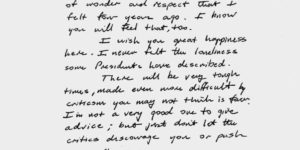 of wonder and respect that I
felt four years ago. I know
you will feel that, too.
I wish you great happiness
here. I never felt the loneliness
some Presidents have described.
There will be very tough
times, made even more difficult by
criticism you may not think is fair.
I'm not a very good one to give
advice; but just don't let the
critics discourage you or push